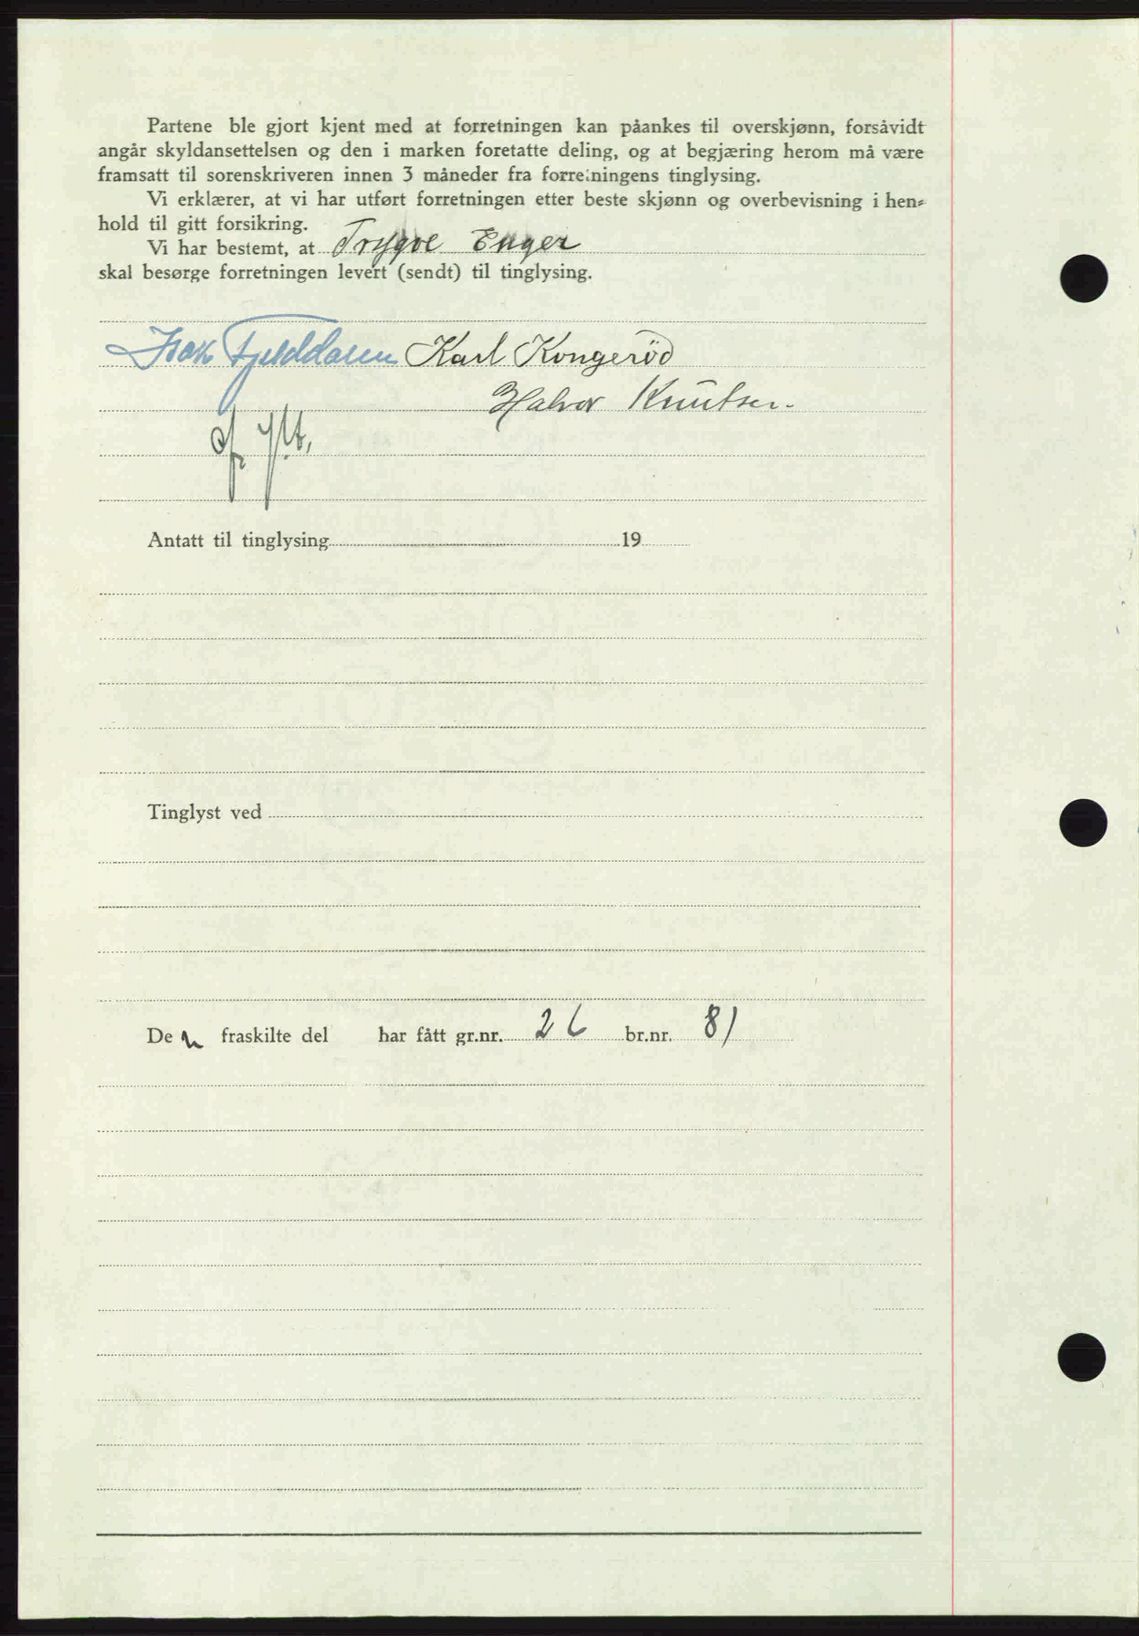 Partene ble gjort kjent med at forretningen kan påankes til overskjønn, forsåvidt
angår skyldansettelsen og den i marken foretatte deling, og at begjæring herom må være
framsatt til sorenskriveren innen 3 måneder fra forretningens tinglysing.
Vi erklærer, at vi har utført forretningen etter beste skjønn og overbevisning i hen-
hold til gitt forsikring.
Vi har bestemt, at Trygve Enger
skal besørge forretningen levert (sendt) til tinglysing.
Isak Fjelddalen Karl Kongeröd
Halvor Knutsen.
Antatt til tinglysing 19
Tinglyst ved
De n fraskilte del har fått gr.nr. 26 br.nr. 81